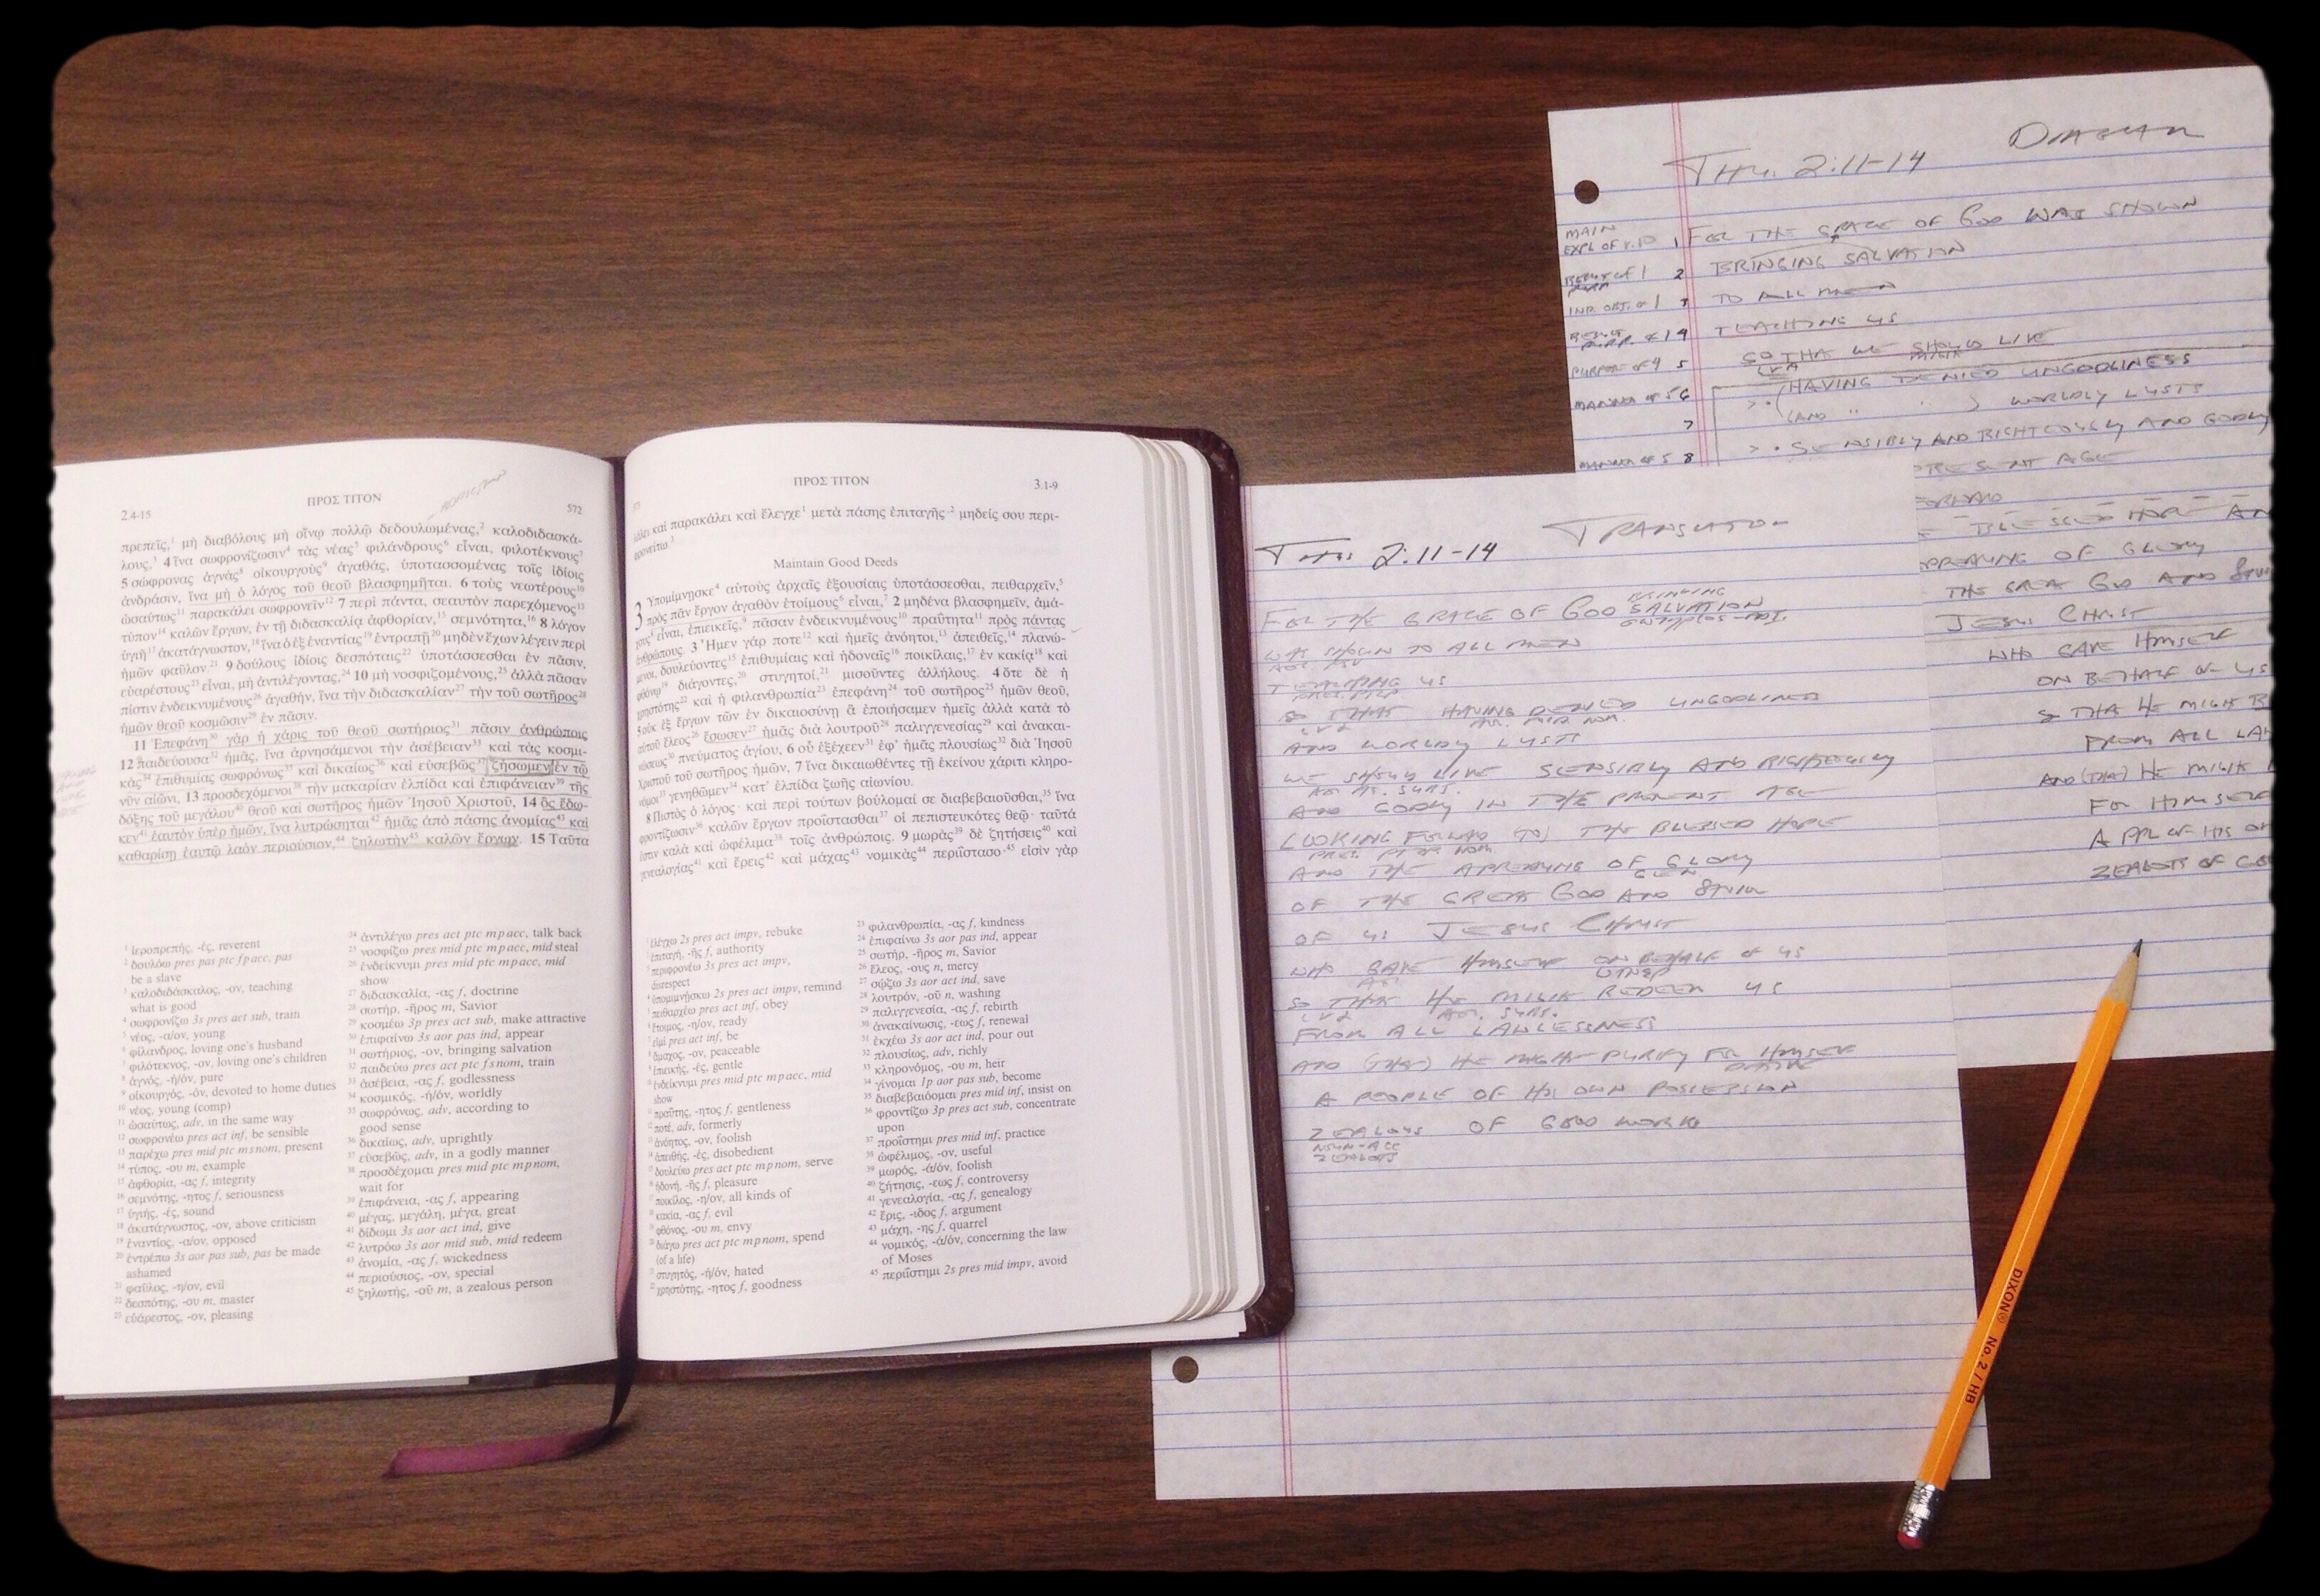 2.4-15
ΠΡΟΣ ΤΙΤΟΝ
572
πρεπεῖς,¹ μὴ διαβόλους μὴ οἴνῳ πολλῷ δεδουλωμένας,² καλοδιδασκά-
λους,³ 4 ἵνα σωφρονίζωσιν⁴ τὰς νέας⁵ φιλάνδρους⁶ εἶναι, φιλοτέκνους⁷
5 σώφρονας ἁγνὰς⁸ οἰκουργοὺς⁹ ἀγαθάς, ὑποτασσομένας τοῖς ἰδίοις
ἀνδράσιν, ἵνα μὴ ὁ λόγος τοῦ θεοῦ βλασφημῆται. 6 τοὺς νεωτέρους¹⁰
ὡσαύτως¹¹ παρακάλει σωφρονεῖν¹² 7 περὶ πάντα, σεαυτὸν παρεχόμενος¹³
τύπον¹⁴ καλῶν ἔργων, ἐν τῇ διδασκαλίᾳ ἀφθορίαν,¹⁵ σεμνότητα,¹⁶ 8 λόγον
ὑγιῆ¹⁷ ἀκατάγνωστον,¹⁸ ἵνα ὁ ἐξ ἐναντίας¹⁹ ἐντραπῇ²⁰ μηδὲν ἔχων λέγειν περὶ
ἡμῶν φαῦλον.²¹ 9 δούλους ἰδίοις δεσπόταις²² ὑποτάσσεσθαι ἐν πᾶσιν,
εὐαρέστους²³ εἶναι, μὴ ἀντιλέγοντας,²⁴ 10 μὴ νοσφιζομένους,²⁵ ἀλλὰ πᾶσαν
πίστιν ἐνδεικνυμένους²⁶ ἀγαθήν, ἵνα τὴν διδασκαλίαν²⁷ τὴν τοῦ σωτῆρος²⁸
ἡμῶν θεοῦ κοσμῶσιν²⁹ ἐν πᾶσιν.
11 Ἐπεφάνη³⁰ γὰρ ἡ χάρις τοῦ θεοῦ σωτήριος³¹ πᾶσιν ἀνθρώποις
12 παιδεύουσα³² ἡμᾶς, ἵνα ἀρνησάμενοι τὴν ἀσέβειαν³³ καὶ τὰς κοσμι-
κὰς³⁴ ἐπιθυμίας σωφρόνως³⁵ καὶ δικαίως³⁶ καὶ εὐσεβῶς³⁷ ζήσωμεν ἐν τῷ
νῦν αἰῶνι, 13 προσδεχόμενοι³⁸ τὴν μακαρίαν ἐλπίδα καὶ ἐπιφάνειαν³⁹ τῆς
δόξης τοῦ μεγάλου⁴⁰ θεοῦ καὶ σωτῆρος ἡμῶν Ἰησοῦ Χριστοῦ, 14 ὃς ἔδω-
κεν⁴¹ ἑαυτὸν ὑπὲρ ἡμῶν, ἵνα λυτρώσηται⁴² ἡμᾶς ἀπὸ πάσης ἀνομίας⁴³ καὶ
καθαρίσῃ ἑαυτῷ λαὸν περιούσιον,⁴⁴ ζηλωτὴν⁴⁵ καλῶν ἔργων. 15 Ταῦτα
¹ ἱεροπρεπής, -ές, reverent
² δουλόω pres pas ptc f p acc, pas
be a slave
³ καλοδιδάσκαλος, -ον, teaching
what is good
⁴ σωφρονίζω 3s pres act sub, train
⁵ νέος, -α/ον, young
⁶ φίλανδρος, loving one's husband
⁷ φιλότεκνος, -ον, loving one's children
⁸ ἁγνός, -ή/όν, pure
⁹ οἰκουργός, -όν, devoted to home duties
¹⁰ νέος, young (comp)
¹¹ ὡσαύτως, adv, in the same way
¹² σωφρονέω pres act inf, be sensible
¹³ παρέχω pres mid ptc m s nom, present
¹⁴ τύπος, -ου m, example
¹⁵ ἀφθορία, -ας f, integrity
¹⁶ σεμνότης, -ητος f, seriousness
¹⁷ ὑγιής, -ές, sound
¹⁸ ἀκατάγνωστος, -ον, above criticism
¹⁹ ἐναντίος, -α/ον, opposed
²⁰ ἐντρέπω 3s aor pas sub, pas be made
ashamed
²¹ φαῦλος, -η/ον, evil
²² δεσπότης, -ου m, master
²³ εὐάρεστος, -ον, pleasing
²⁴ ἀντιλέγω pres act ptc m p acc, talk back
²⁵ νοσφίζω pres mid ptc m p acc, mid steal
²⁶ ἐνδείκνυμι pres mid ptc m p acc, mid
show
²⁷ διδασκαλία, -ας f, doctrine
²⁸ σωτήρ, -ῆρος m, Savior
²⁹ κοσμέω 3p pres act sub, make attractive
³⁰ ἐπιφαίνω 3s aor pas ind, appear
³¹ σωτήριος, -ον, bringing salvation
³² παιδεύω pres act ptc f s nom, train
³³ ἀσέβεια, -ας f, godlessness
³⁴ κοσμικός, -ή/όν, worldly
³⁵ σωφρόνως, adv, according to
good sense
³⁶ δικαίως, adv, uprightly
³⁷ εὐσεβῶς, adv, in a godly manner
³⁸ προσδέχομαι pres mid ptc m p nom,
wait for
³⁹ ἐπιφάνεια, -ας f, appearing
⁴⁰ μέγας, μεγάλη, μέγα, great
⁴¹ δίδωμι 3s aor act ind, give
⁴² λυτρόω 3s aor mid sub, mid redeem
⁴³ ἀνομία, -ας f, wickedness
⁴⁴ περιούσιος, -ον, special
⁴⁵ ζηλωτής, -οῦ m, a zealous person
ΠΡΟΣ ΤΙΤΟΝ
3.1-9
λάλει καὶ παρακάλει καὶ ἔλεγχε¹ μετὰ πάσης ἐπιταγῆς·² μηδείς σου περι-
φρονείτω.³
Maintain Good Deeds
3 Ὑπομίμνῃσκε⁴ αὐτοὺς ἀρχαῖς ἐξουσίαις ὑποτάσσεσθαι, πειθαρχεῖν,⁵
πρὸς πᾶν ἔργον ἀγαθὸν ἑτοίμους⁶ εἶναι,⁷ 2 μηδένα βλασφημεῖν, ἀμά-
χους⁸ εἶναι, ἐπιεικεῖς,⁹ πᾶσαν ἐνδεικνυμένους¹⁰ πραΰτητα¹¹ πρὸς πάντας
ἀνθρώπους. 3 Ἦμεν γάρ ποτε¹² καὶ ἡμεῖς ἀνόητοι,¹³ ἀπειθεῖς,¹⁴ πλανώ-
μενοι, δουλεύοντες¹⁵ ἐπιθυμίαις καὶ ἡδοναῖς¹⁶ ποικίλαις,¹⁷ ἐν κακίᾳ¹⁸ καὶ
φθόνῳ¹⁹ διάγοντες,²⁰ στυγητοί,²¹ μισοῦντες ἀλλήλους. 4 ὅτε δὲ ἡ
χρηστότης²² καὶ ἡ φιλανθρωπία²³ ἐπεφάνη²⁴ τοῦ σωτῆρος²⁵ ἡμῶν θεοῦ,
5 οὐκ ἐξ ἔργων τῶν ἐν δικαιοσύνῃ ἃ ἐποιήσαμεν ἡμεῖς ἀλλὰ κατὰ τὸ
αὐτοῦ ἔλεος²⁶ ἔσωσεν²⁷ ἡμᾶς διὰ λουτροῦ²⁸ παλιγγενεσίας²⁹ καὶ ἀνακαι-
νώσεως³⁰ πνεύματος ἁγίου, 6 οὗ ἐξέχεεν³¹ ἐφ' ἡμᾶς πλουσίως³² διὰ Ἰησοῦ
Χριστοῦ τοῦ σωτῆρος ἡμῶν, 7 ἵνα δικαιωθέντες τῇ ἐκείνου χάριτι κληρο-
νόμοι³³ γενηθῶμεν³⁴ κατ' ἐλπίδα ζωῆς αἰωνίου.
8 Πιστὸς ὁ λόγος· καὶ περὶ τούτων βούλομαί σε διαβεβαιοῦσθαι,³⁵ ἵνα
φροντίζωσιν³⁶ καλῶν ἔργων προΐστασθαι³⁷ οἱ πεπιστευκότες θεῷ· ταῦτά
ἐστιν καλὰ καὶ ὠφέλιμα³⁸ τοῖς ἀνθρώποις. 9 μωρὰς³⁹ δὲ ζητήσεις⁴⁰ καὶ
γενεαλογίας⁴¹ καὶ ἔρεις⁴² καὶ μάχας⁴³ νομικὰς⁴⁴ περιΐστασο·⁴⁵ εἰσὶν γὰρ
¹ ἐλέγχω 2s pres act impv, rebuke
² ἐπιταγή, -ῆς f, authority
³ περιφρονέω 3s pres act impv,
disrespect
⁴ ὑπομιμνῄσκω 2s pres act impv, remind
⁵ πειθαρχέω pres act inf, obey
⁶ ἕτοιμος, -η/ον, ready
⁷ εἰμί pres act inf, be
⁸ ἄμαχος, -ον, peaceable
⁹ ἐπιεικής, -ές, gentle
¹⁰ ἐνδείκνυμι pres mid ptc m p acc, mid
show
¹¹ πραΰτης, -ητος f, gentleness
¹² ποτέ, adv, formerly
¹³ ἀνόητος, -ον, foolish
¹⁴ ἀπειθής, -ές, disobedient
¹⁵ δουλεύω pres act ptc m p nom, serve
¹⁶ ἡδονή, -ῆς f, pleasure
¹⁷ ποικίλος, -η/ον, all kinds of
¹⁸ κακία, -ας f, evil
¹⁹ φθόνος, -ου m, envy
²⁰ διάγω pres act ptc m p nom, spend
(of a life)
²¹ στυγητός, -ή/όν, hated
²² χρηστότης, -ητος f, goodness
²³ φιλανθρωπία, -ας f, kindness
²⁴ ἐπιφαίνω 3s aor pas ind, appear
²⁵ σωτήρ, -ῆρος m, Savior
²⁶ ἔλεος, -ους n, mercy
²⁷ σῴζω 3s aor act ind, save
²⁸ λουτρόν, -οῦ n, washing
²⁹ παλιγγενεσία, -ας f, rebirth
³⁰ ἀνακαίνωσις, -εως f, renewal
³¹ ἐκχέω 3s aor act ind, pour out
³² πλουσίως, adv, richly
³³ κληρονόμος, -ου m, heir
³⁴ γίνομαι 1p aor pas sub, become
³⁵ διαβεβαιόομαι pres mid inf, insist on
³⁶ φροντίζω 3p pres act sub, concentrate
upon
³⁷ προΐστημι pres mid inf, practice
³⁸ ὠφέλιμος, -ον, useful
³⁹ μωρός, -ά/όν, foolish
⁴⁰ ζήτησις, -εως f, controversy
⁴¹ γενεαλογία, -ας f, genealogy
⁴² ἔρις, -ιδος f, argument
⁴³ μάχη, -ης f, quarrel
⁴⁴ νομικός, -ά/όν, concerning the law
of Moses
⁴⁵ περιΐστημι 2s pres mid impv, avoid
TITUS 2:11-14 TRANSLATION
BRINGING
FOR THE GRACE OF GOD SALVATION
WAS SHOWN TO ALL MEN
TEACHING US
SO THAT HAVING DENIED UNGODLINESS
AND WORLDLY LUSTS
WE SHOULD LIVE SENSIBLY AND RIGHTEOUSLY
AND GODLY IN THE PRESENT AGE
LOOKING FORWARD (TO) THE BLESSED HOPE
PRES. PTCP. NOM.
AND THE APPEARING OF GLORY
GEN
OF THE GREAT GOD AND SAVIOR
OF US JESUS CHRIST
WHO GAVE HIMSELF ON BEHALF OF US
SO THAT HE MIGHT REDEEM US
AOR. SUBJ.
FROM ALL LAWLESSNESS
AND (THAT) HE MIGHT PURIFY FOR HIMSELF
DATIVE
A PEOPLE OF HIS OWN POSSESSION
ZEALOUS OF GOOD WORKS
NOUN-ACC
ZEALOTS
TITUS 2:11-14 DIAGRAM
MAIN
EXPL OF V.10 1 FOR THE GRACE OF GOD WAS SHOWN
2 BRINGING SALVATION
IND. OBJ. OF 1 3 TO ALL MEN
4 TEACHING US
PURPOSE OF 4 5 SO THAT WE SHOULD LIVE
MANNER OF 5 6 (HAVING DENIED UNGODLINESS
7 (AND " " ) WORLDLY LUSTS
MANNER OF 5 8 > • SENSIBLY AND RIGHTEOUSLY AND GODLY
PRESENT AGE
BLESSED HOPE AN
PPEARING OF GLORY
THE GREAT GOD AND SAVI
JESUS CHRIST
WHO GAVE HIMSELF
ON BEHALF OF US
SO THAT HE MIGHT R
FROM ALL LAW
AND (THAT) HE MIGHT
FOR HIMSELF
A PPL OF HIS OW
ZEALOTS OF GOO
DIXON® No. 2 / HB